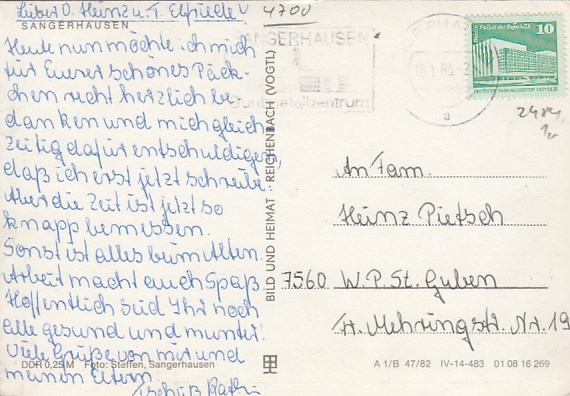 Lieber O. Heinz u. T. Elfriede
4700
SANGERHAUSEN
Heute nun möchte ich mich
für Euerer schönes Päck-
chen recht herzlich be-
danken und mich gleich-
zeitig dafür entschuldigen,
daß ich erst jetzt schreibe.
Aber die Zeit ist jetzt so
knapp bemessen.
Sonst ist alles beim Alten.
Arbeit macht auch Spaß.
Hoffentlich sid Ihr noch
alle gesund und munter!
Viele Grüße von mir und
meinen Eltern.
Tschüß
DDR 0,25 M Foto: Steffen, Sangerhausen
BILD UND HEIMAT REICHENBACH (VOGTL)
SANGERHAUSEN
a
10
An Fam.
Heinz Pietsch
7560 W. P. St. Guben
Fr. Mehringstr. Nr. 19
A 1/B 47/82 IV-14-483 01 08 16 269